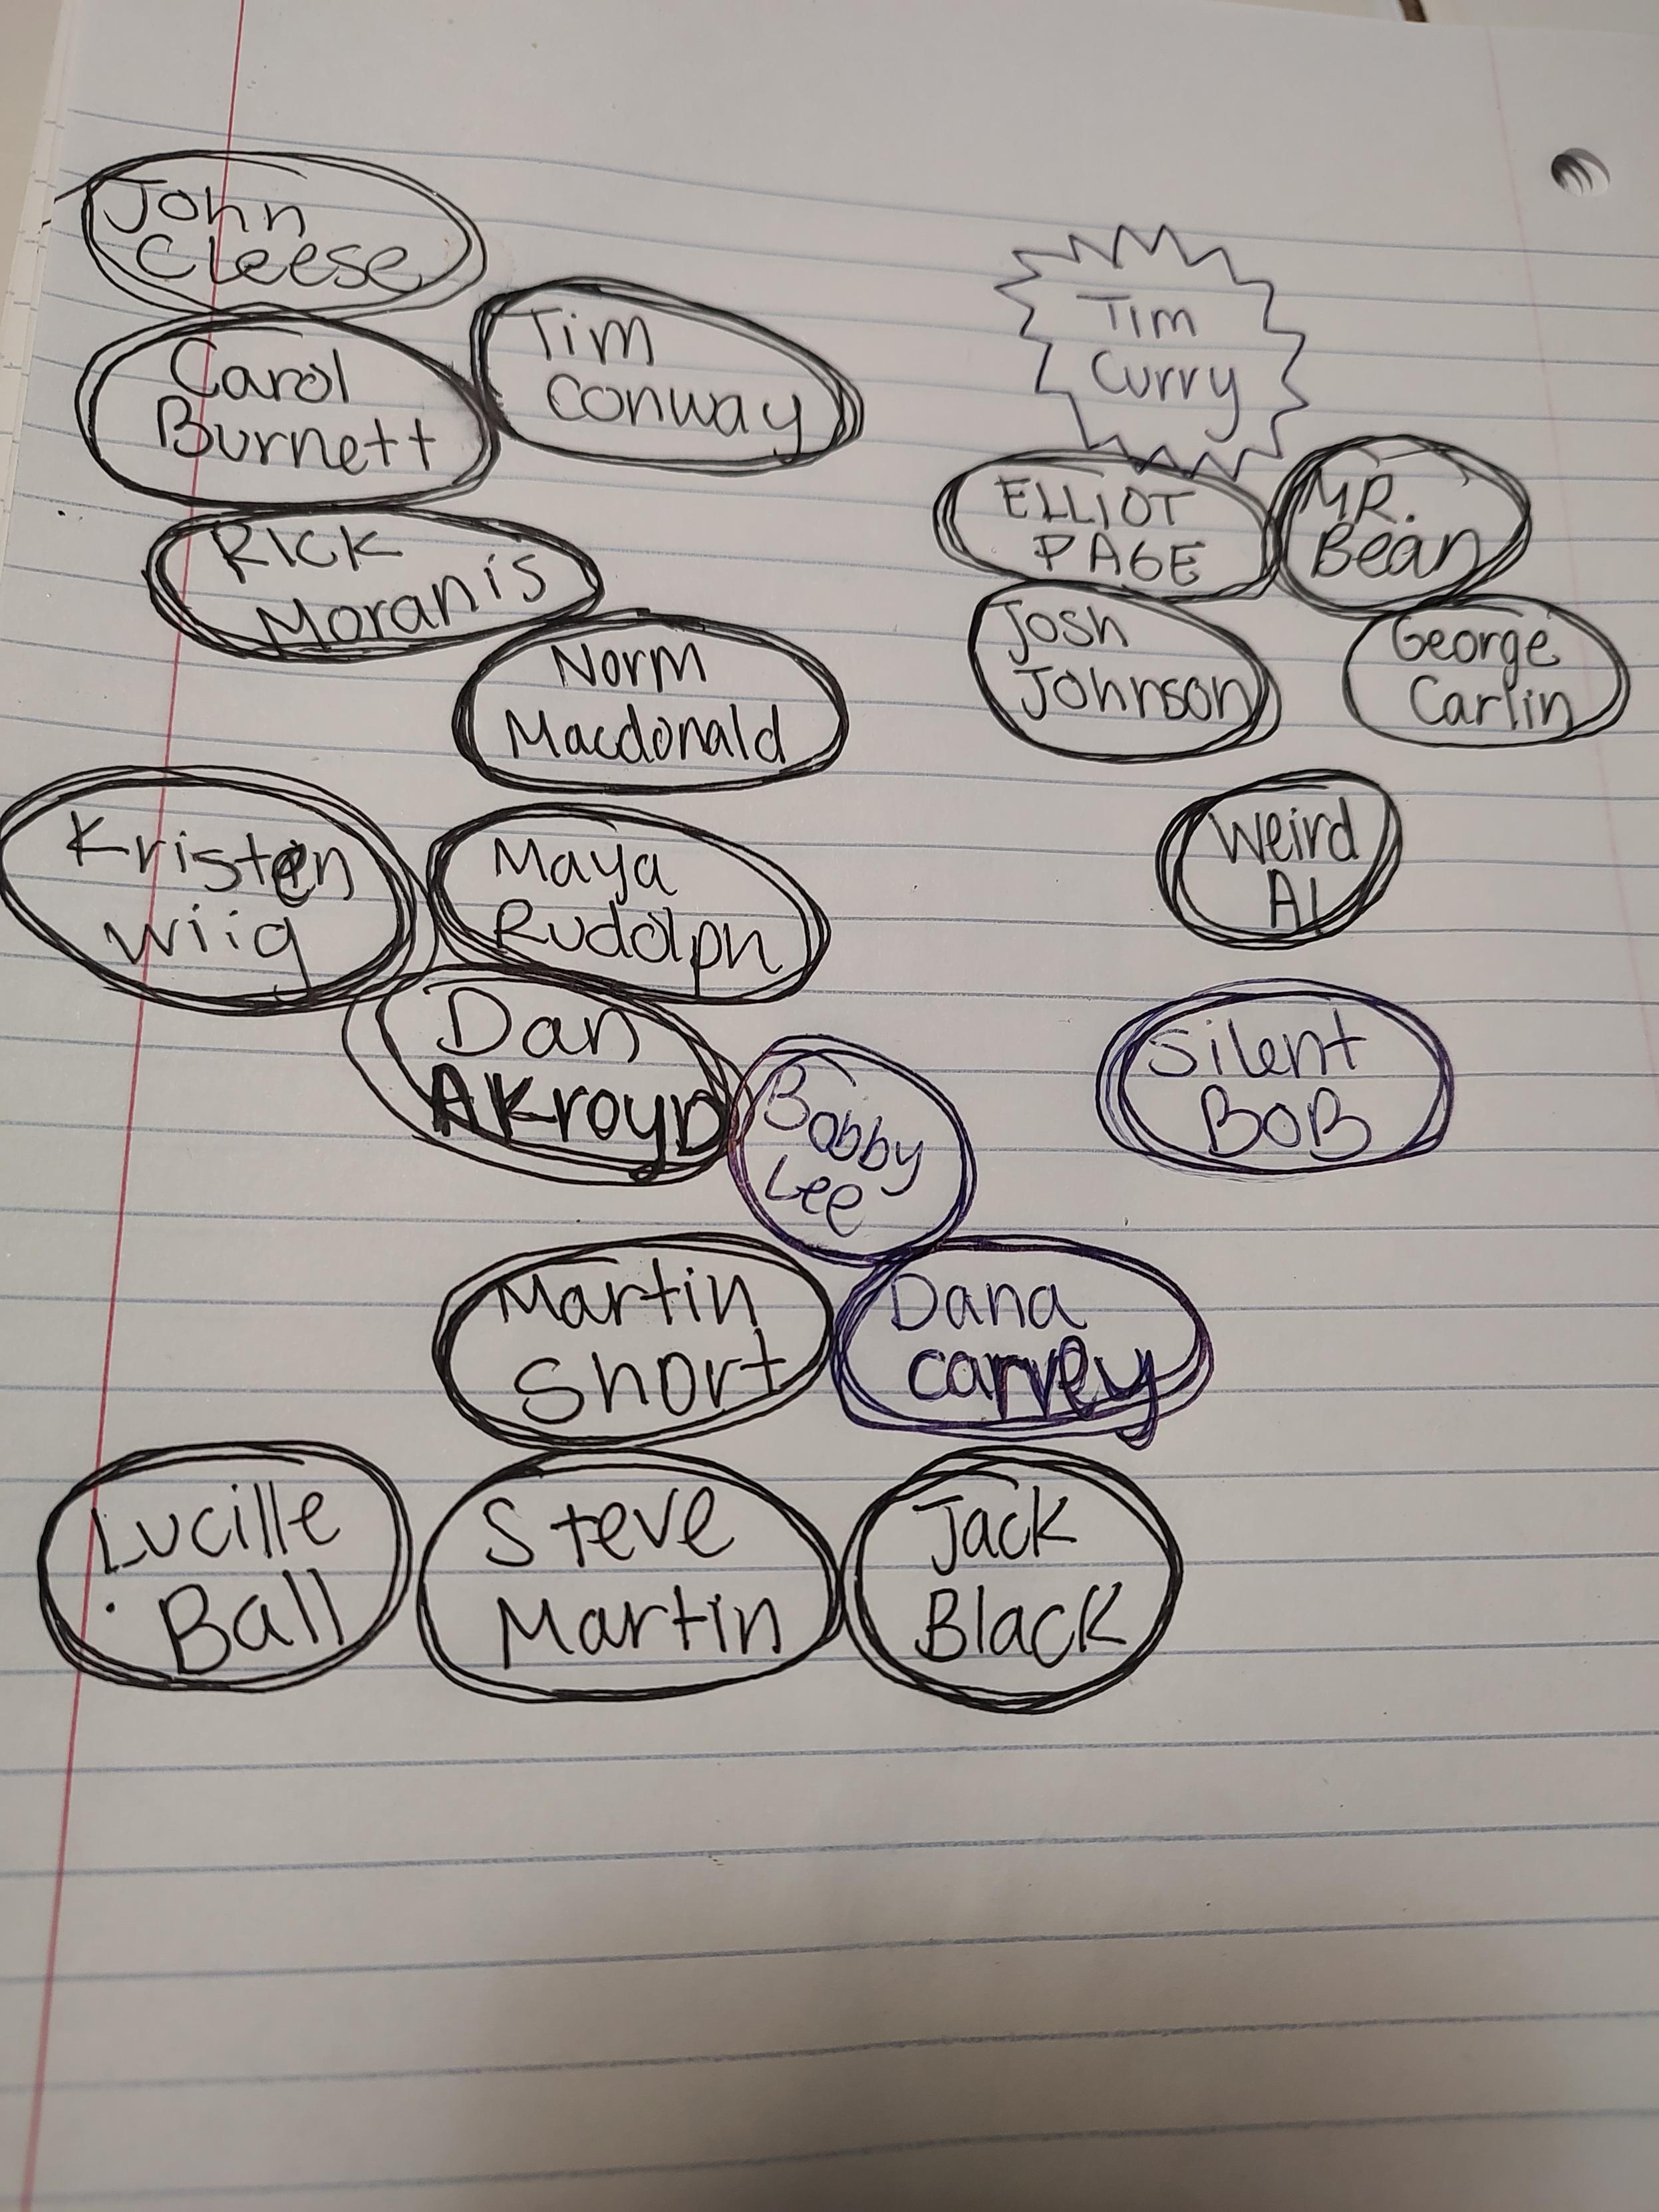 John
Cleese
Tim
Conway
Tim
Curry
Carol
Burnett
ELLIOT
PAGE
MR.
Bean
RICK
Moranis
Josh
Johnson
George
Carlin
Norm
Macdonald
Kristen
Wiig
Maya
Rudolph
Weird
Al
Dan
AKroyD
Silent
BOB
Bobby
Lee
Martin
Short
Dana
carvey
Lucille
Ball
Steve
Martin
Jack
Black